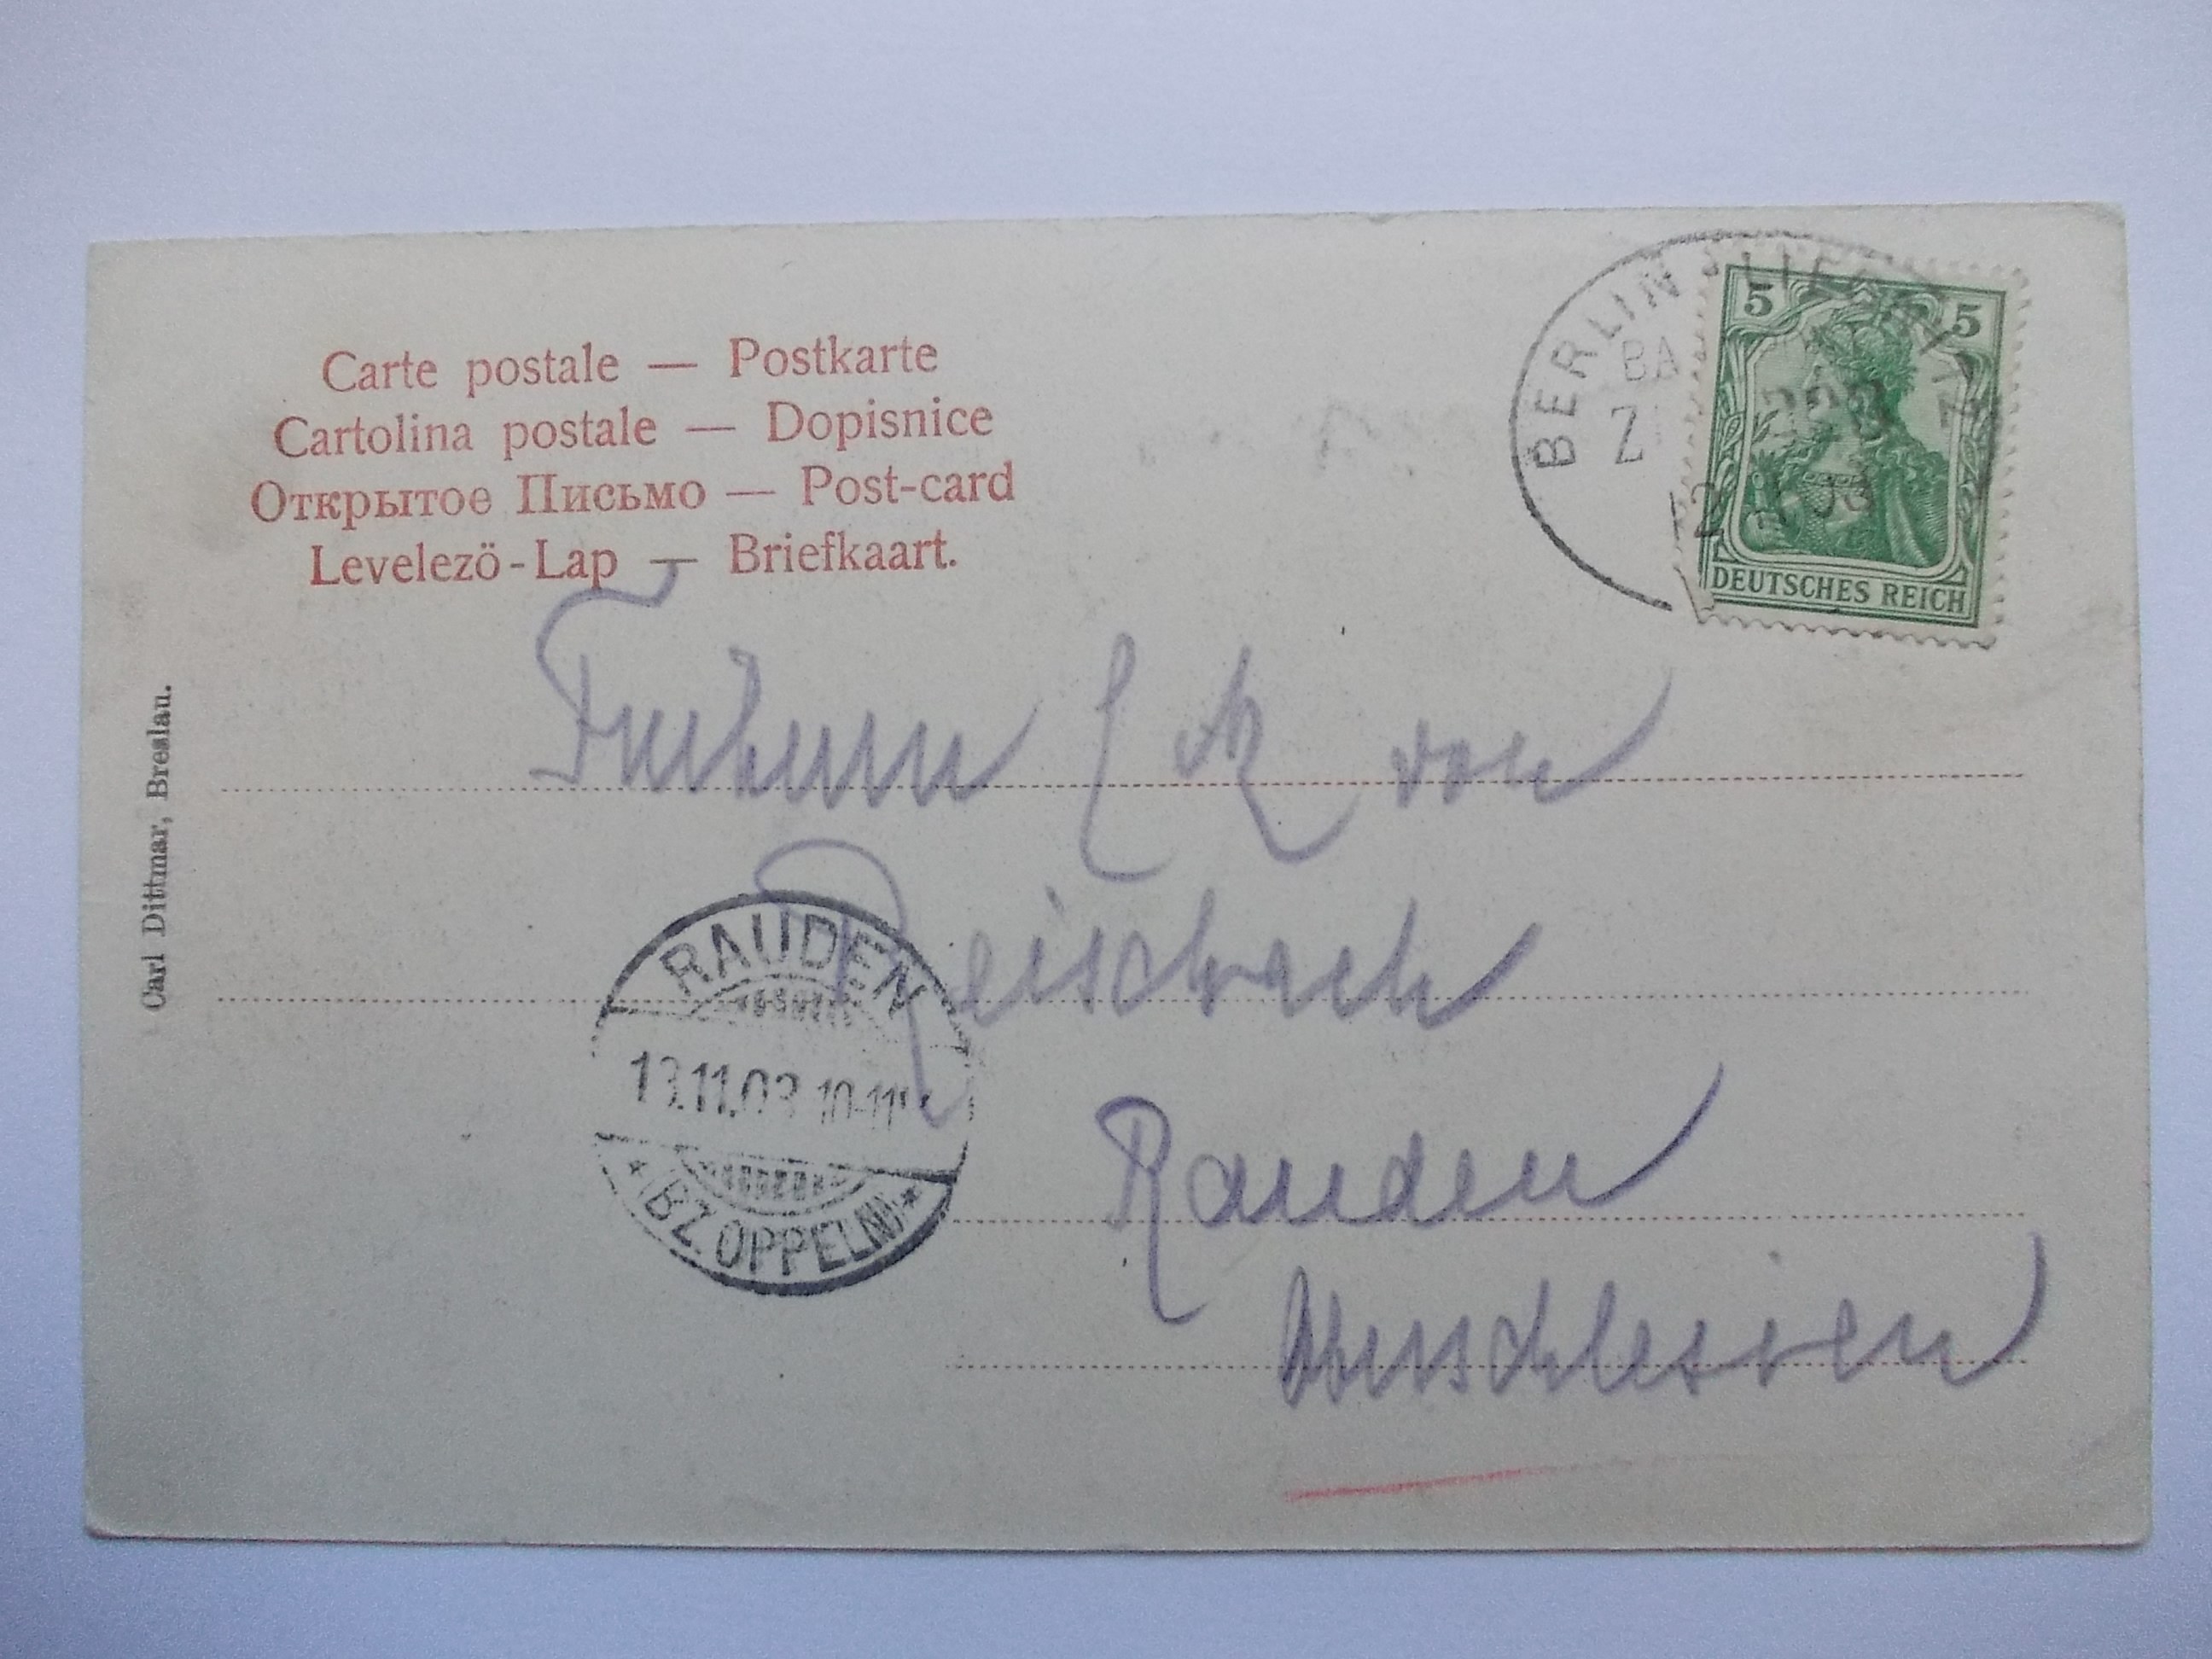 Carte postale — Postkarte
Cartolina postale — Dopisnice
Открытое Письмо — Post-card
Levelezö-Lap — Briefkaart.
BERLIN
BA
5 5
DEUTSCHES REICH
Carl Dittmar, Breslau.
von
Reischach
RAUDEN
13.11.03 10-11
* (BZ. OPPELN) *
Rauden
Oberschlesien